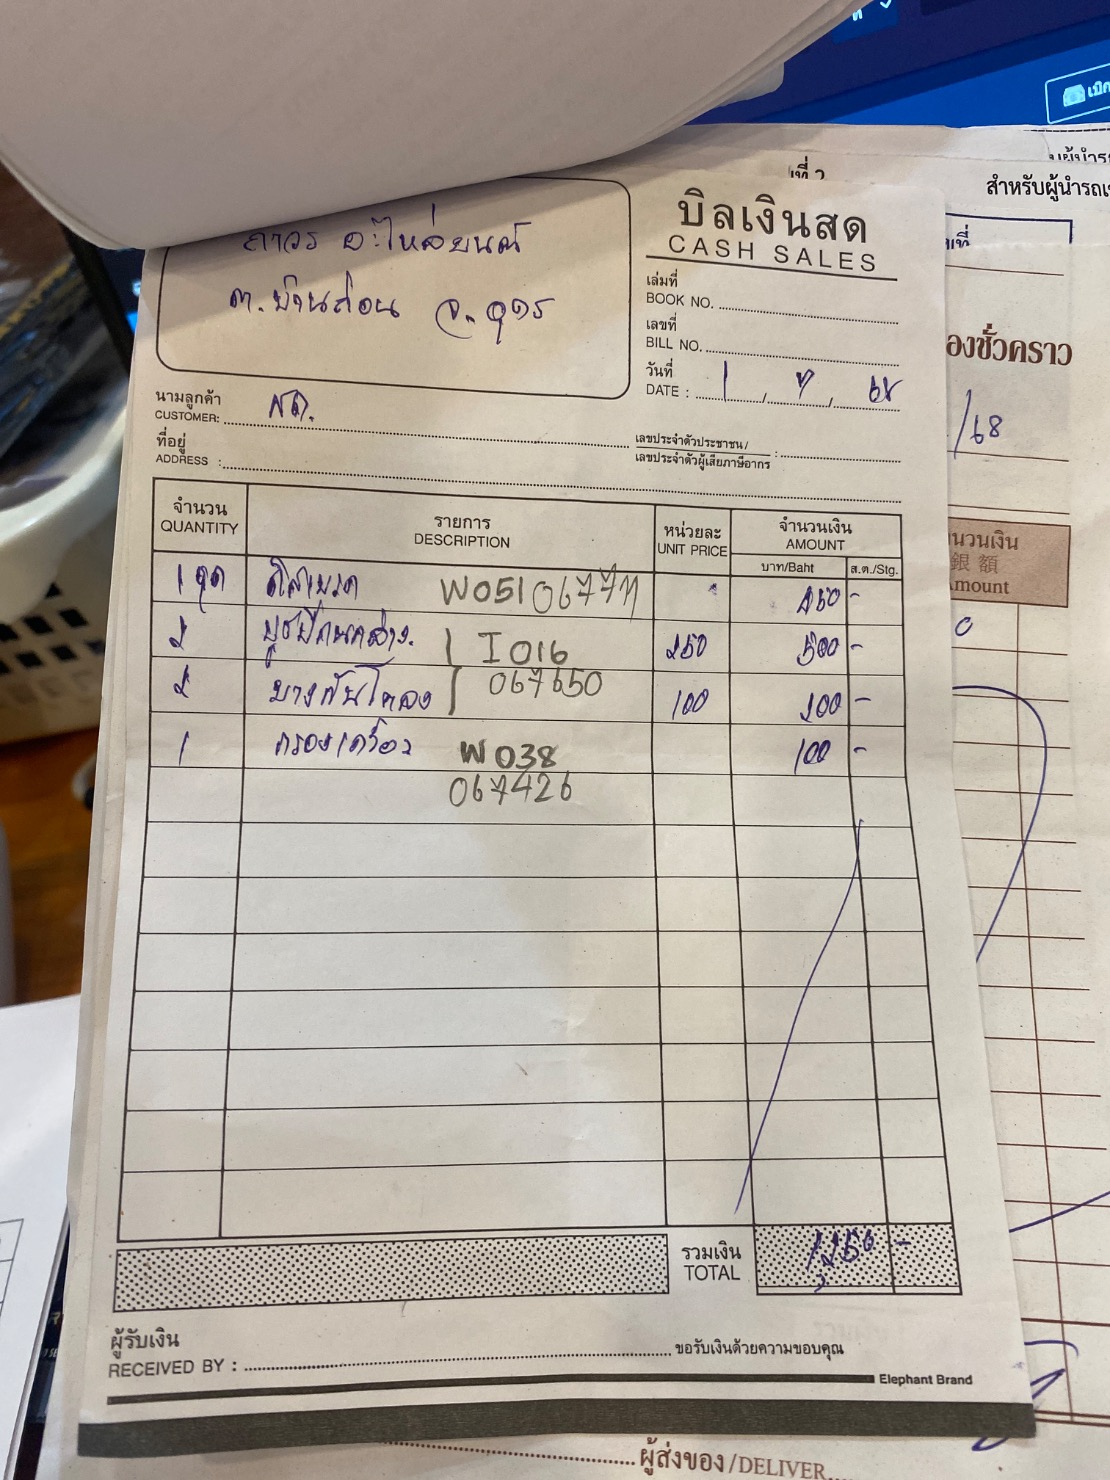 เปิด
ที่ 2
ผู้นำรถ
สำหรับผู้นำรถเ
ที่
องชั่วคราว
/68
นวนเงิน
銀 額
mount
บิลเงินสด
CASH SALES
ถาวร อะไหล่ยนต์
ต.บ้านก้อน จ.อุดร
เล่มที่
BOOK NO.
เลขที่
BILL NO.
วันที่
DATE : 1 / 7 / 68
นามลูกค้า
CUSTOMER: สด.
ที่อยู่
ADDRESS :
เลขประจำตัวประชาชน/
เลขประจำตัวผู้เสียภาษีอากร :
จำนวน รายการ หน่วยละ จำนวนเงิน
QUANTITY DESCRIPTION UNIT PRICE AMOUNT
บาท/Baht ส.ต./Stg.
1 ชุด ดิสเบรค W051 067771 450 -
2 บูชปีกนกล่าง. I016 250 500 -
2 ยางกันโคลง 067650 100 200 -
1 กรองเครื่อง W038 100 -
067426
รวมเงิน
TOTAL 1,250 -
ผู้รับเงิน
RECEIVED BY : ขอรับเงินด้วยความขอบคุณ
Elephant Brand
ผู้ส่งของ/DELIVER